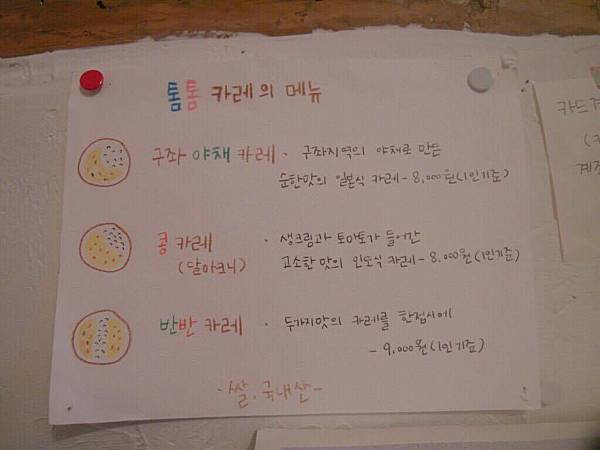 톰톰 카레의 메뉴
구좌 야채 카레 · 구좌지역의 야채로 만든
순한맛의 일본식 카레 - 8,000원(1인기준)
콩 카레 · 생크림과 토마토가 들어간
(달마크니) 고소한 맛의 인도식 카레 - 8,000원(1인기준)
반반 카레 · 두가지맛의 카레를 한접시에
- 9,000원(1인기준)
- 쌀. 국내산 -
카드